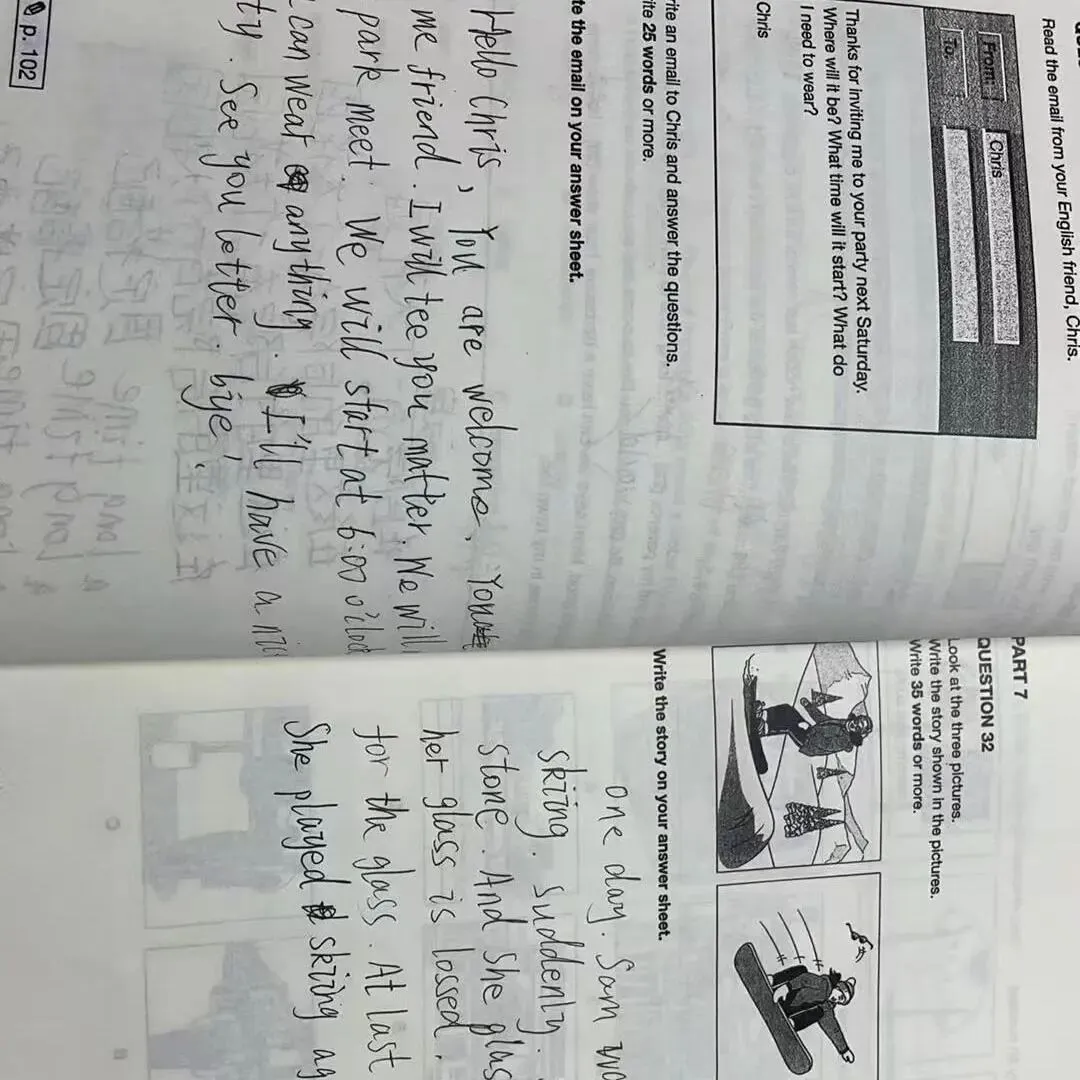 Read the email from your English friend, Chris.
From:
Chris
To:
Thanks for inviting me to your party next Saturday.
Where will it be? What time will it start? What do
I need to wear?
Chris
rite an email to Chris and answer the questions.
ite 25 words or more.
te the email on your answer sheet.
Hello Chris, You are welcome. You
me friend. I will tee you matter. We will
park meet. We will start at 6:00 o'cloc
can weat anything. I'll have a nic
ty. See you letter. bye!
p. 102
PART 7
QUESTION 32
Look at the three pictures.
Write the story shown in the pictures.
Write 35 words or more.
Write the story on your answer sheet.
one day. Sam wa
skiing. suddenly.
stone. And she glas
her glass is lossed.
for the glass. At last
She played skiing ag